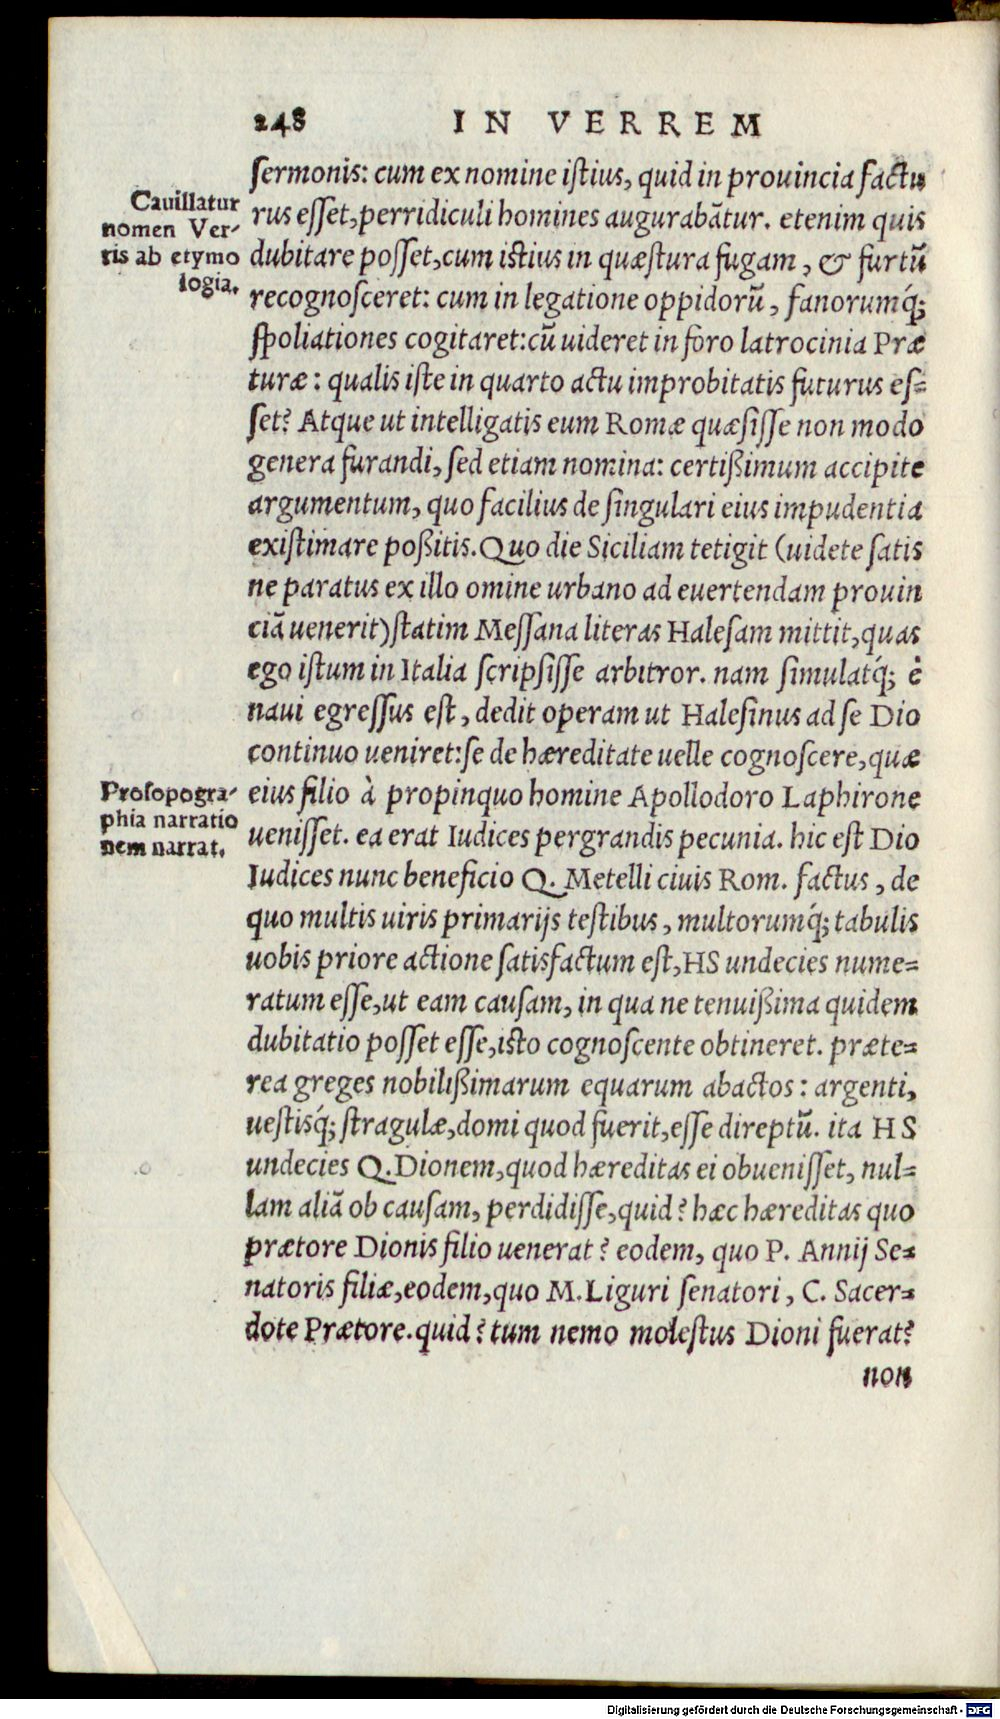 248 IN VERREM
sermonis: cum ex nomine istius, quid in prouincia factu
rus esset, perridiculi homines augurabãtur. etenim quis
dubitare posset, cum istius in quæstura fugam, & furtũ
recognosceret: cum in legatione oppidorũ, fanorumq́;
spoliationes cogitaret: cũ uideret in foro latrocinia Præ
turæ: qualis iste in quarto actu improbitatis futurus es=
set? Atque ut intelligatis eum Romæ quæsisse non modo
genera furandi, sed etiam nomina: certißimum accipite
argumentum, quo facilius de singulari eius impudentia
existimare poßitis. Quo die Siciliam tetigit (uidete satis
ne paratus ex illo omine urbano ad euertendam prouin
ciã uenerit) statim Messana literas Halesam mittit, quas
ego istum in Italia scripsisse arbitror. nam simulatq́; è
naui egressus est, dedit operam ut Halesinus ad se Dio
continuo ueniret: se de hæreditate uelle cognoscere, quæ
eius filio à propinquo homine Apollodoro Laphirone
uenisset. ea erat Iudices pergrandis pecunia. hic est Dio
Iudices nunc beneficio Q. Metelli ciuis Rom. factus, de
quo multis uiris primarijs testibus, multorumq́; tabulis
uobis priore actione satisfactum est, HS undecies nume=
ratum esse, ut eam causam, in qua ne tenuißima quidem
dubitatio posset esse, isto cognoscente obtineret. præte=
rea greges nobilißimarum equarum abactos: argenti,
uestisq́; stragulæ, domi quod fuerit, esse direptũ. ita HS
undecies Q. Dionem, quod hæreditas ei obuenisset, nul=
lam aliã ob causam, perdidisse, quid? hæc hæreditas quo
prætore Dionis filio uenerat? eodem, quo P. Annij Se=
natoris filiæ, eodem, quo M. Liguri senatori, C. Sacer=
dote Prætore. quid? tum nemo molestus Dioni fuerat?
non
Cauillatur
nomen Ver-
ris ab etymo
logia.
Prosopogra-
phia narratio
nem narrat.
Digitalisierung gefördert durch die Deutsche Forschungsgemeinschaft - DFG